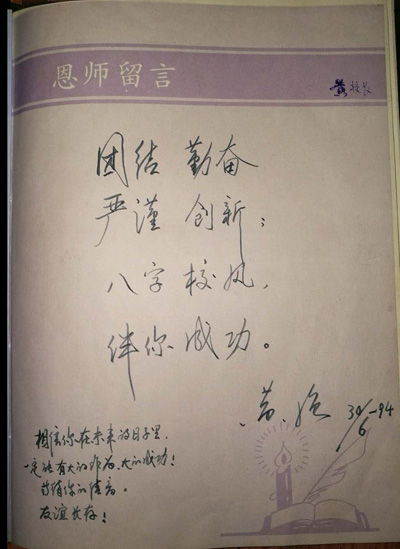 恩师留言
黄校长
团结 勤奋
严谨 创新；
八字校风，
伴你成功。
30/6-94
相信你在未来的日子里，
一定能有大的作为、大的成功！
等待你的佳音。
友谊长存！